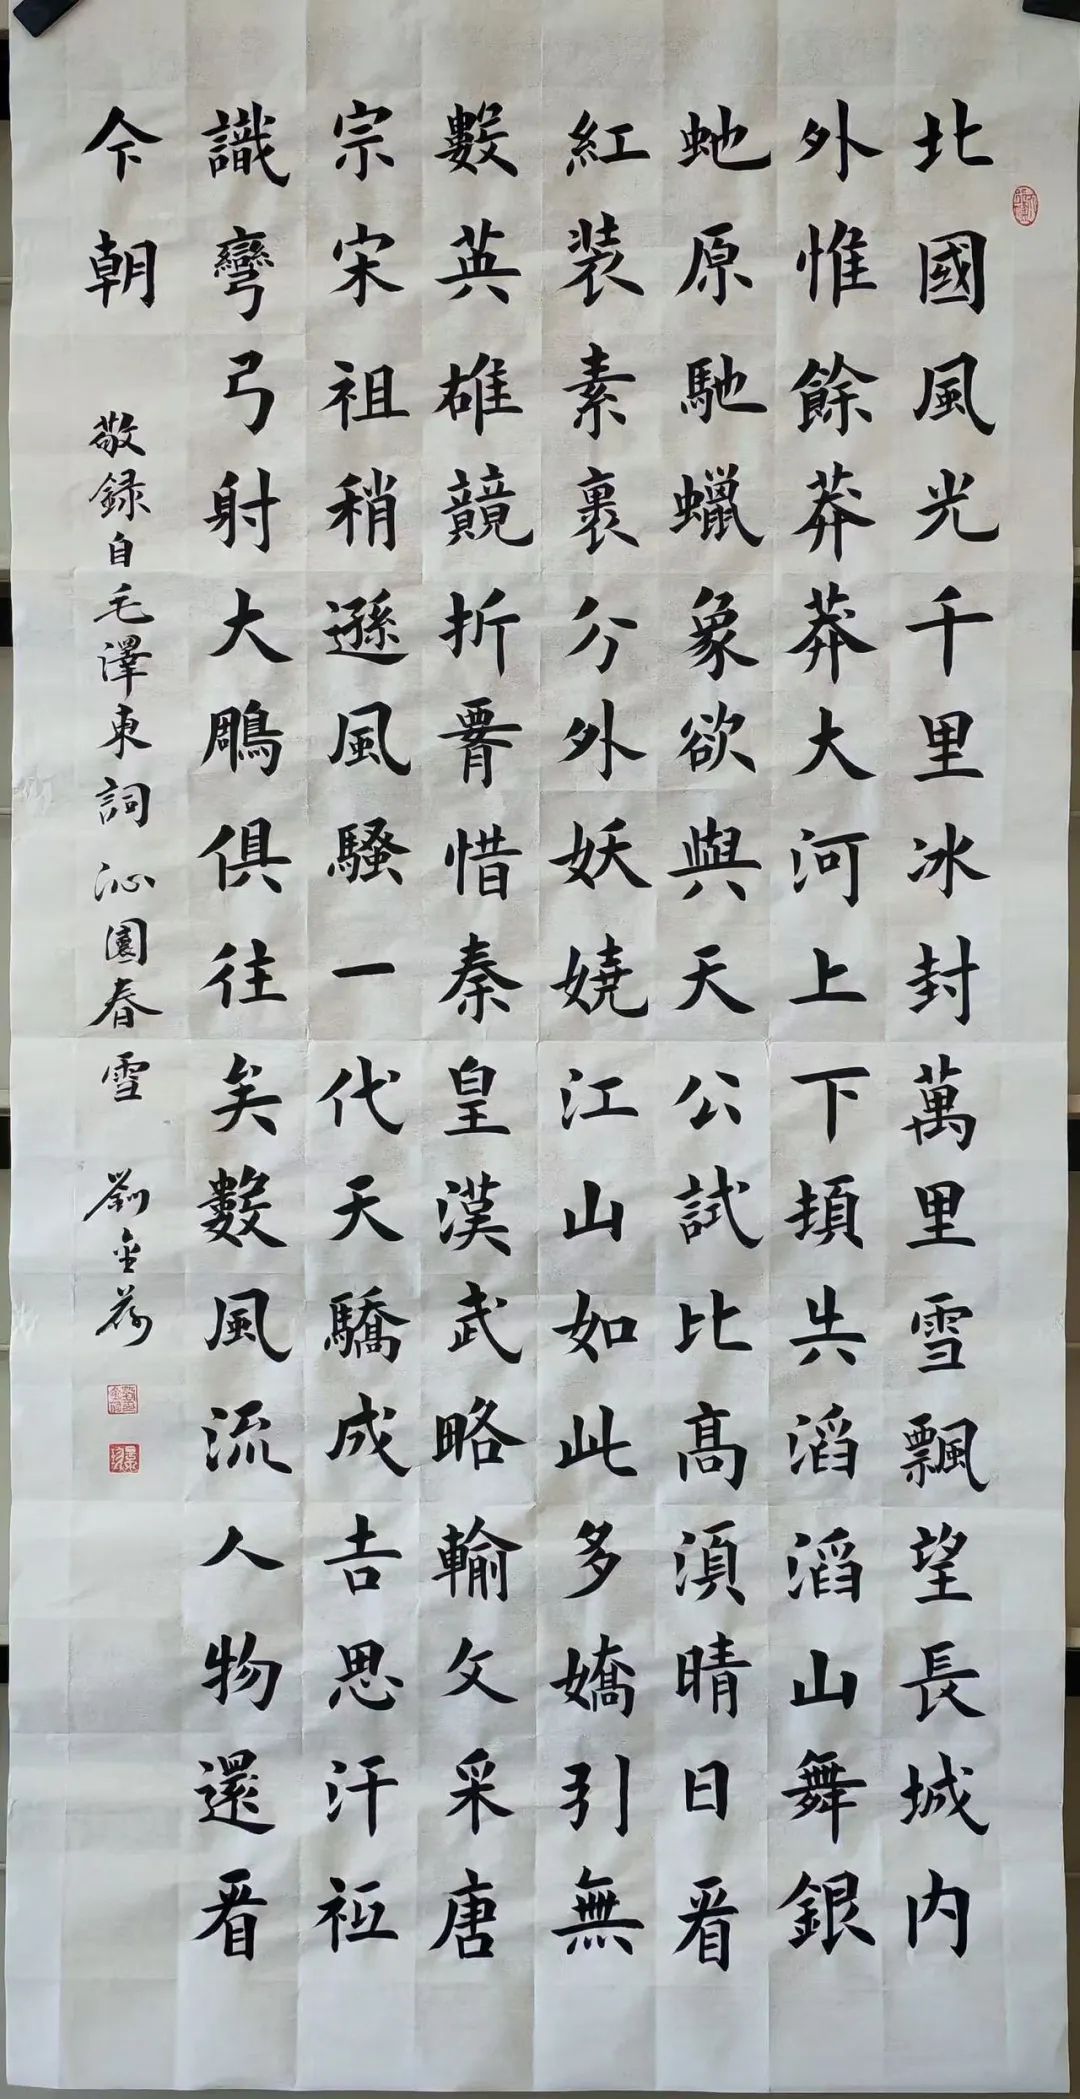 北國風光千里冰封萬里雪飄望長城内
外惟餘莽莽大河上下頓失滔滔山舞銀
虵原馳蠟象欲與天公試比高須晴日看
紅装素裹分外妖嬈江山如此多嬌引無
數英雄競折腰惜秦皇漢武略輸文采唐
宗宋祖稍遜風騷一代天驕成吉思汗祗
識彎弓射大鵰俱往矣數風流人物還看
今朝
敬録自毛澤東詞沁園春雪 劉金荔